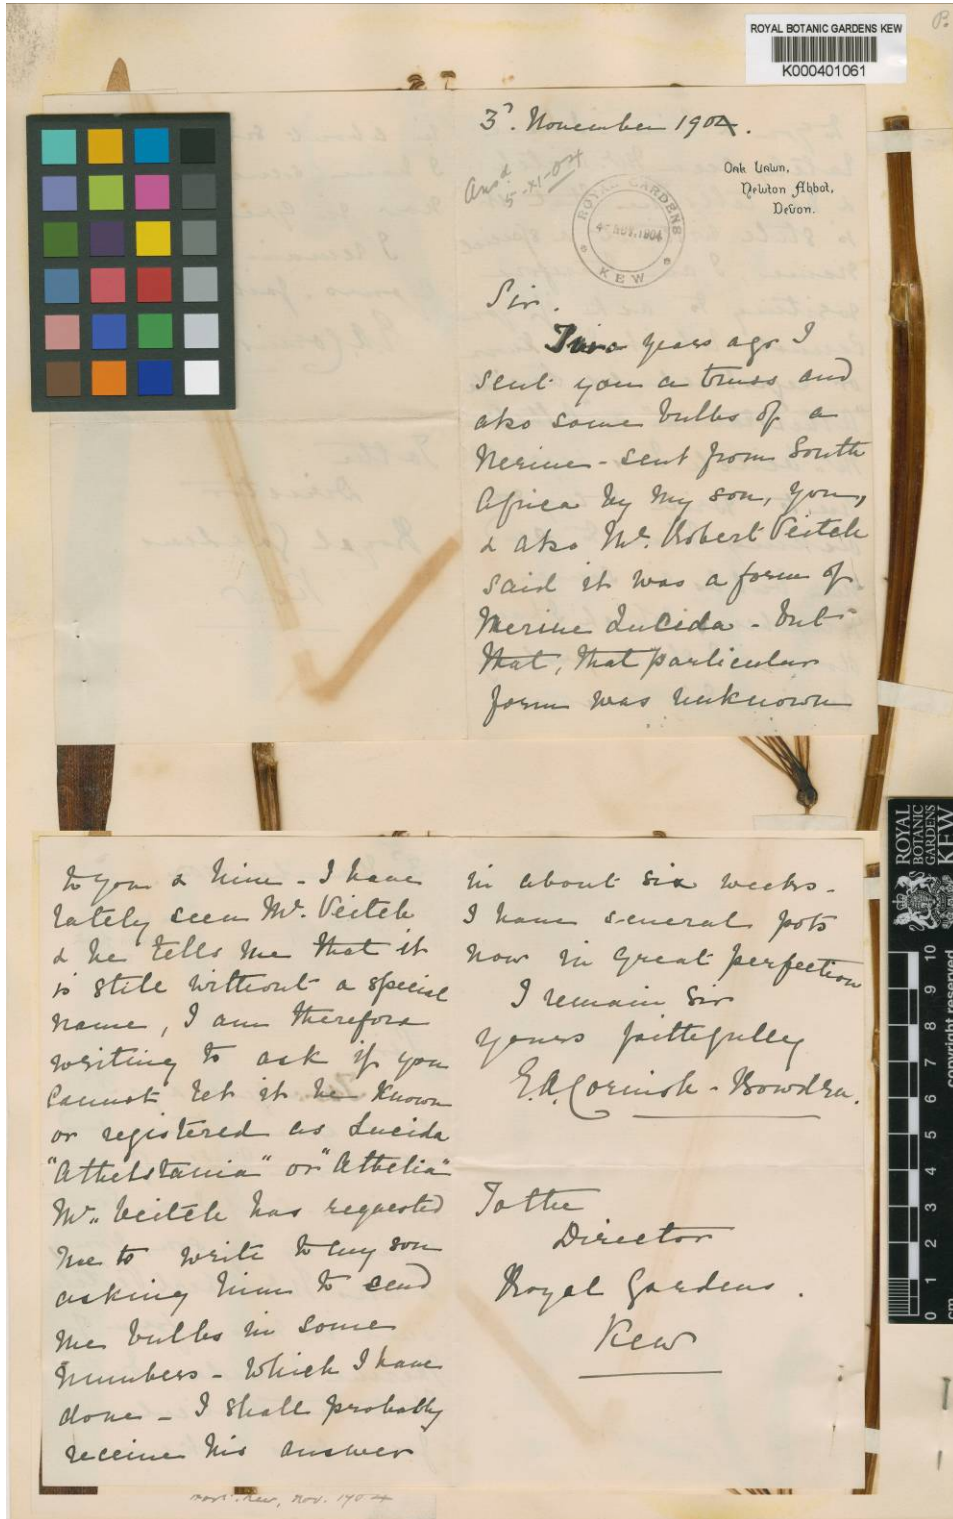 ROYAL BOTANIC GARDENS KEW
K000401061
P.
3d. November 1904.
Ansd.
5-XI-04
Oak Lawn,
Newton Abbot,
Devon.
ROYAL GARDENS
4 NOV. 1904
KEW
Sir.
Two years ago I
sent you a truss and
also some bulbs of a
Nerine - sent from South
Africa by my son, you,
& also Mr. Robert Veitch
said it was a form of
Nerine Lucida - but
that, that particular
form was unknown
to you & him - I have
lately seen Mr. Veitch
& he tells me that it
is still without a special
name, I am therefore
writing to ask if you
cannot let it be known
or registered as Lucida
"Athelstania" or "Athelia"
Mr. Veitch has requested
me to write to my son
asking him to send
me bulbs in some
numbers - which I have
done - I shall probably
receive his answer
in about six weeks -
I have several pots
now in great perfection
I remain Sir
yours faithfully
E.A. Cornish - Bowden.
To the
Director
Royal Gardens.
Kew
Kew, Nov. 1904
ROYAL
BOTANIC
GARDENS
KEW
0 1 2 3 4 5 6 7 8 9 10
cm
copyright reserved